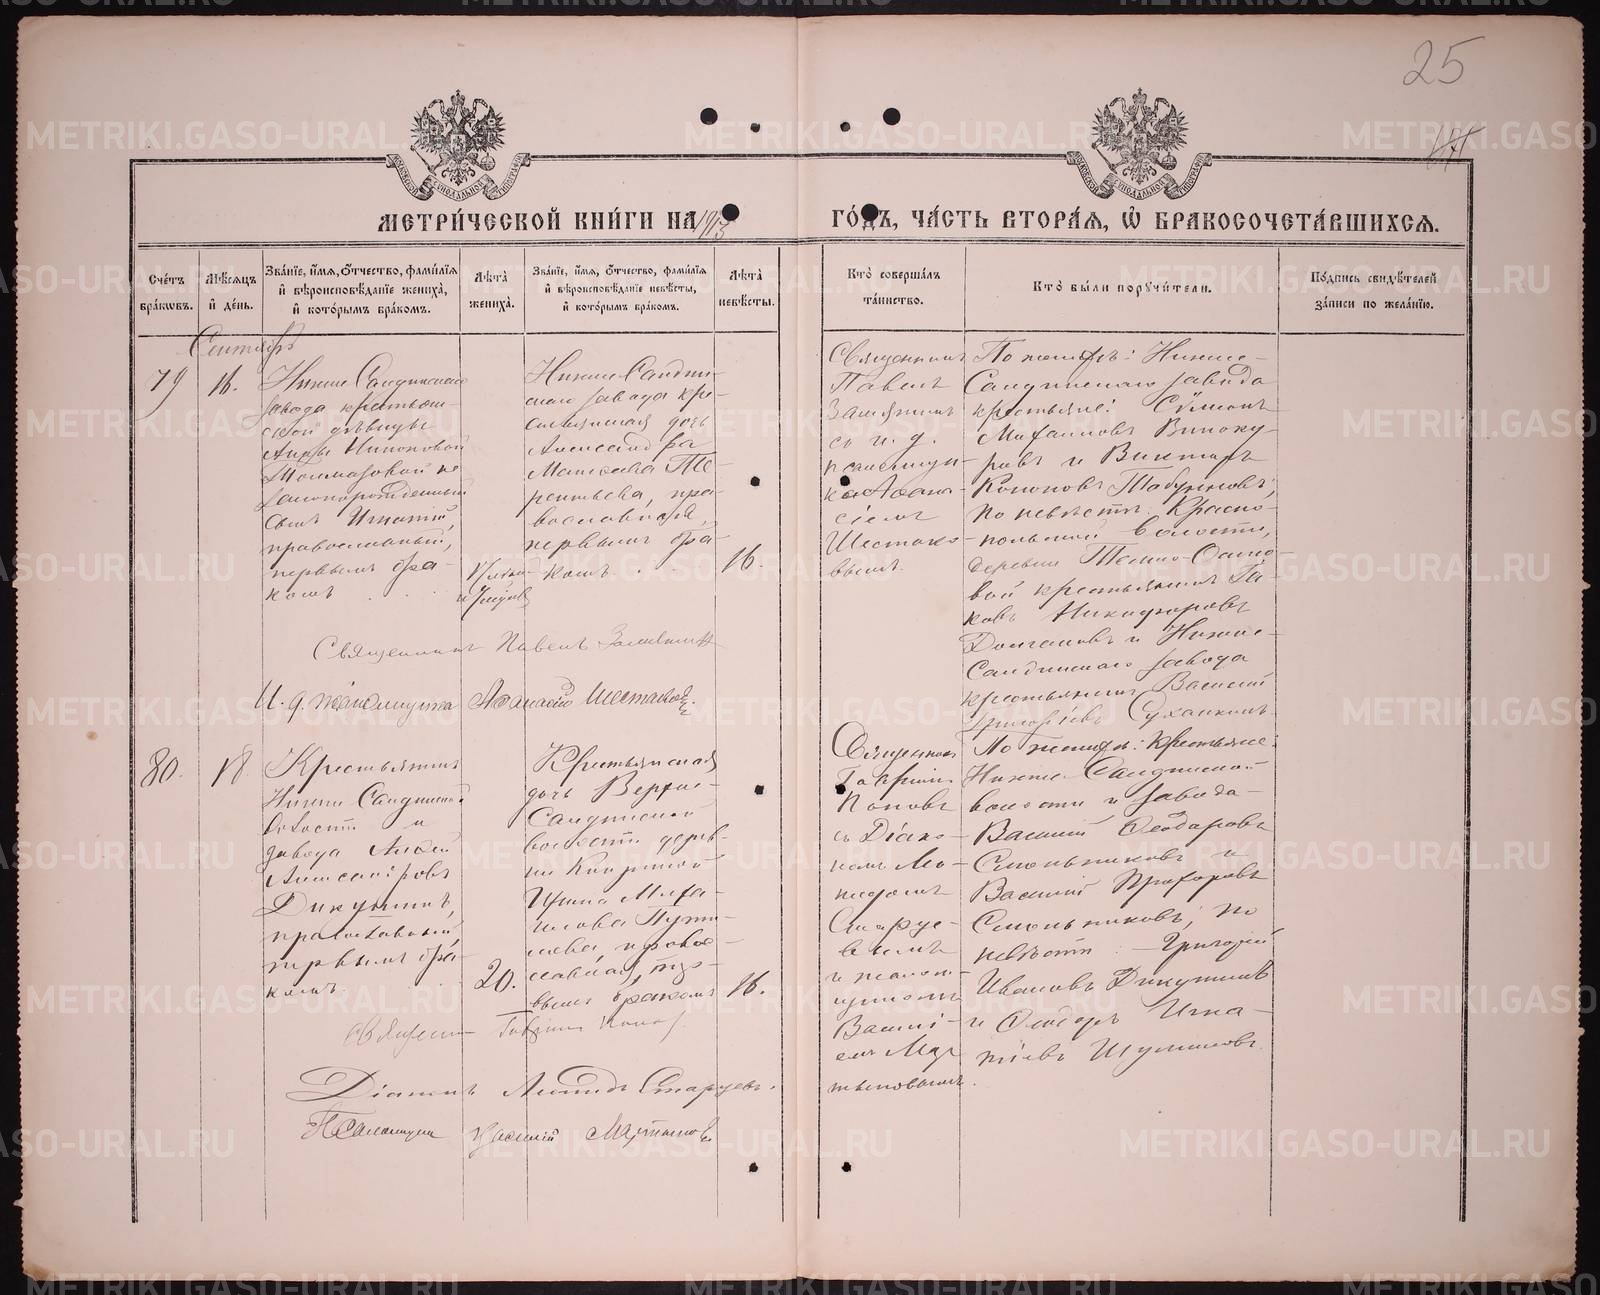 25
МОСКОВСКОЙ СѴНОДАЛЬНОЙ ТИПОГРАФІИ
МОСКОВСКОЙ СѴНОДАЛЬНОЙ ТИПОГРАФІИ
МЕТРИ́ЧЕСКОЙ КНИ́ГИ НА 1913 ГО́ДЪ, ЧА́СТЬ ВТОРА́Я, Ѡ БРАКОСОЧЕТА́ВШИХСЯ.
Сче́тъ бра́кѡвъ.
Мѣ́сяцъ и҆ де́нь.
Зва́нїе, и҆́мя, ѻ҆́тчество, фами́лїя и҆ вѣроисповѣ́данїе жениха̀, и҆ кото́рымъ бра́комъ.
Лѣ́та жениха̀.
Зва́нїе, и҆́мя, ѻ҆́тчество, фами́лїя и҆ вѣроисповѣ́данїе невѣ́сты, и҆ кото́рымъ бра́комъ.
Лѣ́та невѣ́сты.
Кто̀ соверша́лъ та́инство.
Кто̀ бы́ли порꙋчи́тели.
По́дпись свидѣ́телей за́писи по жела́нїю.
Сентябрь
79
16.
Нижне Салдинскаго
завода крестьян-
ской дѣвицы
Анны
не
законорожденный
сынъ Игнатій,
православный,
первымъ бра-
комъ
Нижне Салдин-
скаго завода кре-
стьянская дочь
Александра
Матѳеева Те-
рентьева, пра-
вославная,
первымъ бра-
комъ
16.
Священникъ
Павелъ
Замятинъ
съ и. д.
псаломщи-
ка Аѳана-
сіемъ
Шестако-
вымъ.
По женихѣ: Нижне-
Салдинскаго завода
крестьяне: Сѵмеонъ
Михаиловъ Виноку-
ровъ и Викторъ
Кононовъ
по невѣстѣ: Красно-
польской волости,
деревни Темно-Осино-
вой крестьянинъ Іа-
ковъ Никифоровъ
и Нижне-
Салдинскаго завода
крестьянинъ Василій
Григорьевъ Суханкинъ.
Священникъ Павелъ Замятинъ
И. д. псаломщика Аѳанасій Шестаковъ.
80.
18.
Крестьянинъ
Нижне Салдинской
волости и
завода
Александровъ
Дикушинъ,
православный,
первымъ бра-
комъ.
20.
Крестьянская
дочь Верхне-
Салдинской
волости дерев-
ни
Ирина Миха-
илова Пути-
лова, правос-
лавная, пер-
вымъ бракомъ
16.
Священникъ
Гавріилъ
Поповъ
съ Діако-
номъ Ле-
нидомъ
Старце-
вымъ
и псалом-
щикомъ
Васи́лі-
емъ Мар-
тыновымъ.
По женихѣ: крестьяне:
Нижне Салдинской
волости и завода-
Василій Ѳеодоровъ
и
Василій Прохоровъ
по
невѣстѣ - Григорій
Ивановъ Дикушинъ
и Ѳеодоръ Игна-
тіевъ Шулиновъ.
Священникъ Гавріилъ Поповъ
Діаконъ Леонидъ Старцевъ.
Псаломщикъ Василій Мартыновъ
METRIKI.GASO-URAL.RU